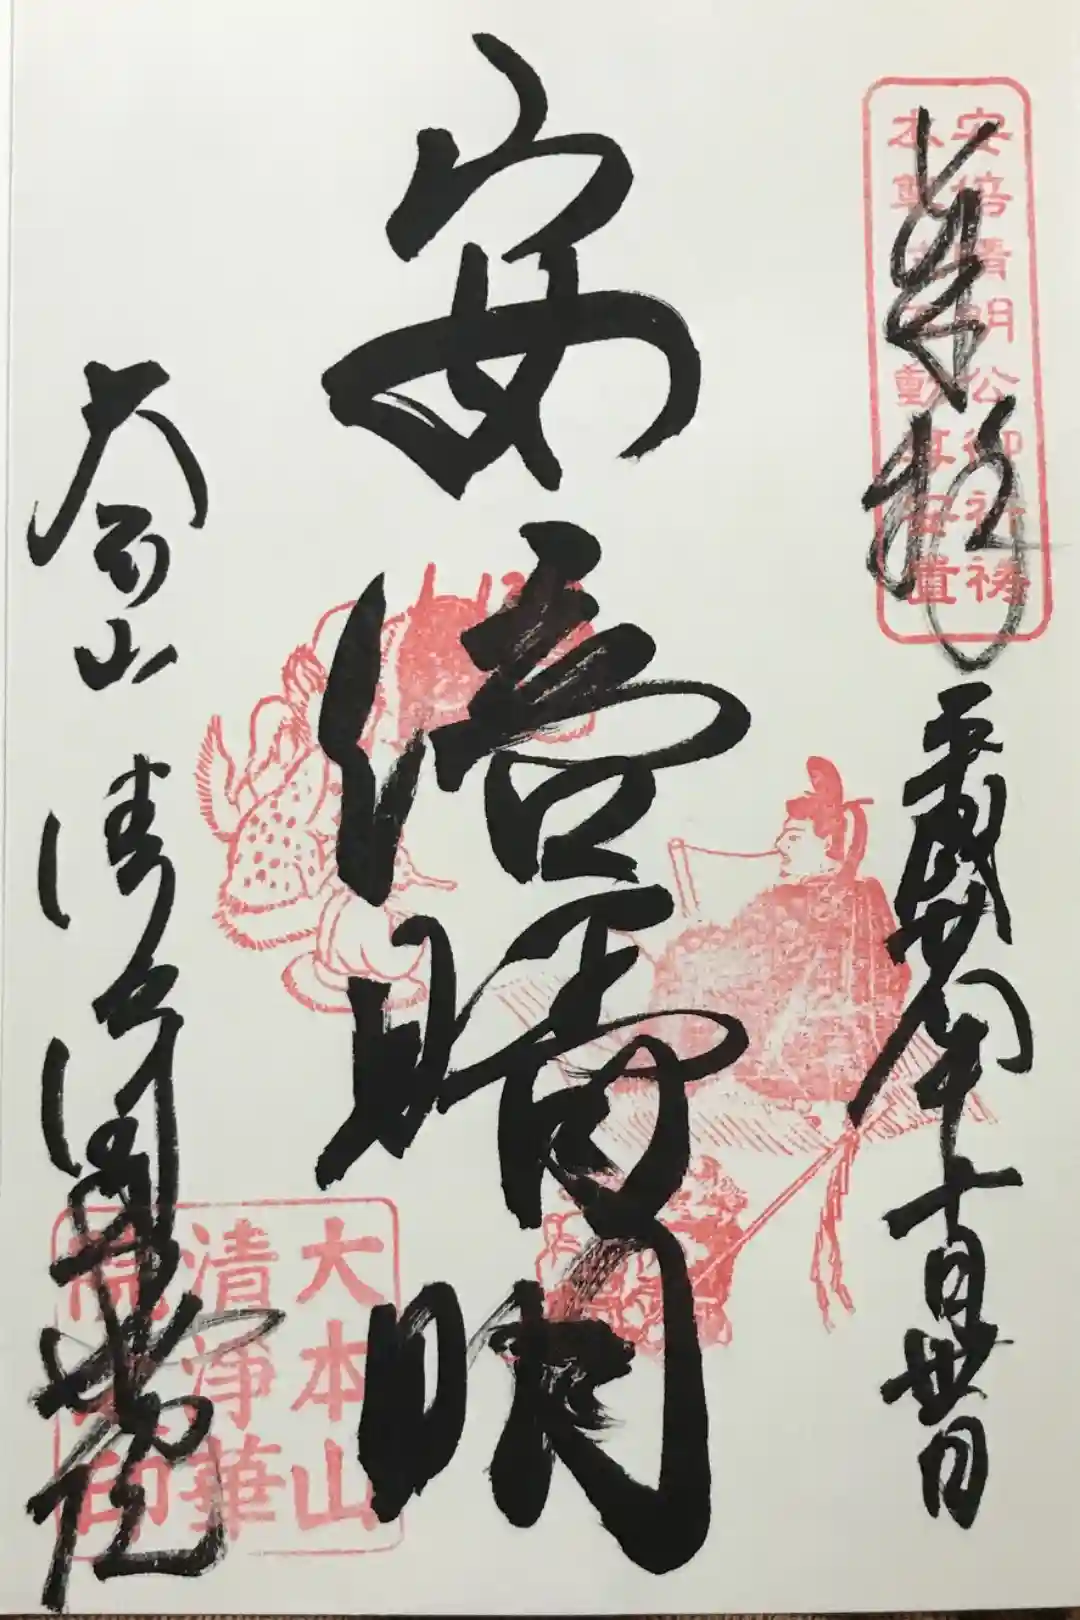 奉拝
安倍晴明公御祈祷
本尊泣不動尊安置
平成 年十月 日
安倍晴明
大本山 清浄華院
大本山
清浄華
院之印